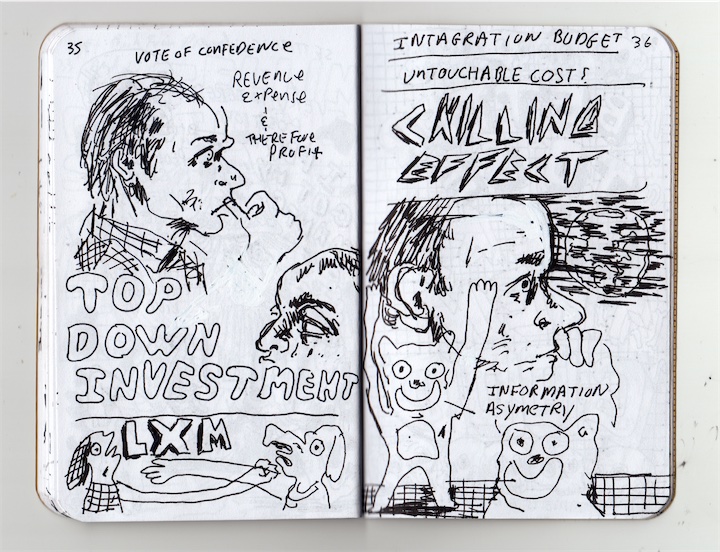 35
VOTE OF CONFEDENCE
REVENUE
EXPENSE
&
THEREFORE
PROFIT
TOP
DOWN
INVESTMENT
LXM
INTAGRATION BUDGET 36
UNTOUCHABLE COSTS
CHILLING
EFFECT
INFORMATION
ASYMETRY